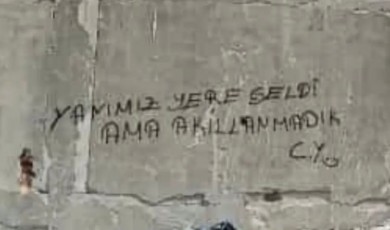 YANIMIZ YERE GELDİ
AMA AKILLANMADIK
C.Y.